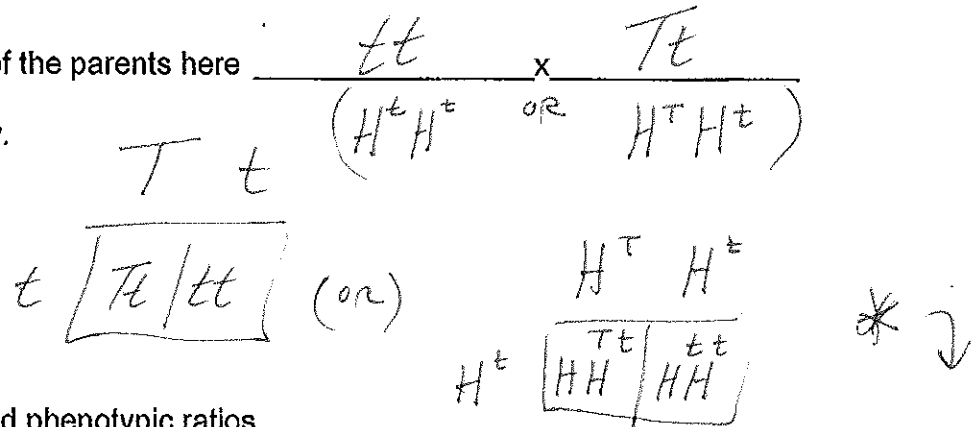 of the parents here tt x Tt
(HᵗHᵗ OR HᵀHᵗ)
.
T t
t Tt tt (OR)
Hᵀ Hᵗ
Hᵗ HHᵀᵗ HHᵗᵗ *
d phenotypic ratios